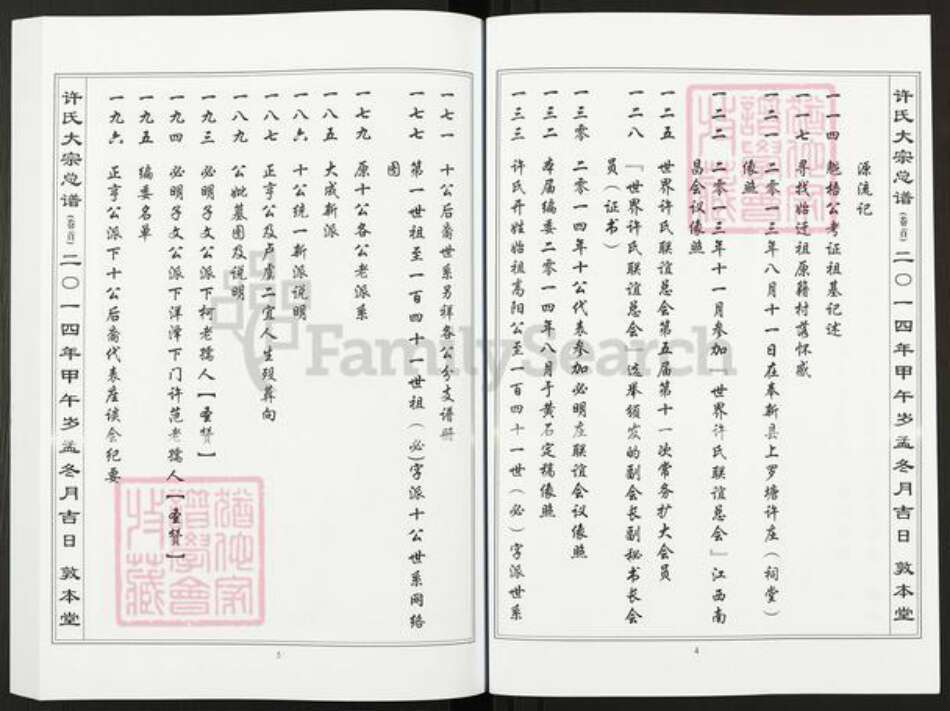 许氏大宗总谱(卷首)二〇一四年甲午岁孟冬月吉日 敦本堂
源流记
一一四 魁梧公考证祖墓记述
一一七 寻找始迁祖原籍村落怀感
一二一 二零一三年八月十一日在奉新县上罗塘许庄(祠堂)
像照
一二二 二零一三年十一月参加「世界许氏联谊总会』江西南
昌会议像照
一二五 世界许氏联谊总会第五届第十一次常务扩大会员
一二八 「世界许氏联谊总会」选举颁发的副会长副秘书长会
员(证书)
一三零 二零一四年十公代表参加必明庄联谊会议像照
一三二 本届编委二零一四年八月于黄石定稿像照
一三三 许氏开姓始祖高阳公至一百四十一世(必)字派世系
4
一七一 十公后裔世系另祥各公分支谱册
一七七 第一世祖至一百四十一世祖(必)字派十公世系网络
图
一七九 原十公各公老派系
一八五 大成新派
一八六 十公统一新派说明
一八七 正亨公及卢虞二宜人生殁葬向
一八九 公妣墓图及说明
一九三 必明子文公派下柯老孺人【圣赞】
一九四 必明子文公派下洋泽下门许范老孺人【圣赞】
一九五 编委名单
一九六 正亨公派下十公后裔代表座谈会纪要
许氏大宗总谱(卷首)二〇一四年甲午岁孟冬月吉日 敦本堂
5
FamilySearch